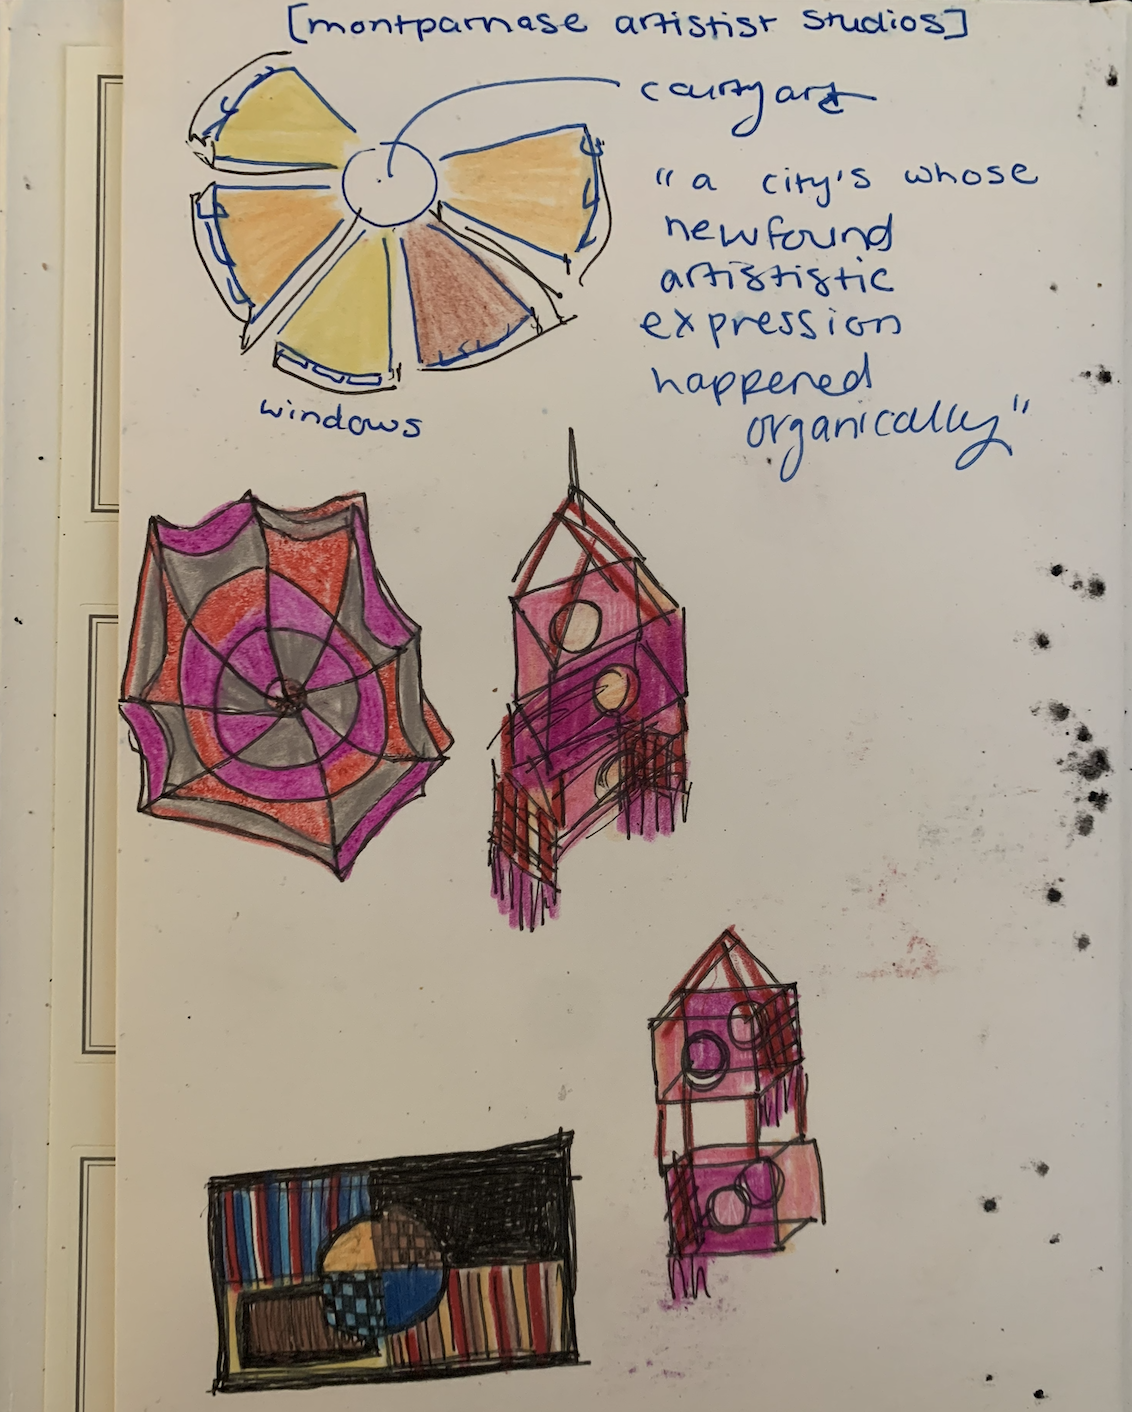 [montparnase artistist studios]
courtyard
"a city's whose
newfound
artististic
expression
happened
organically"
windows